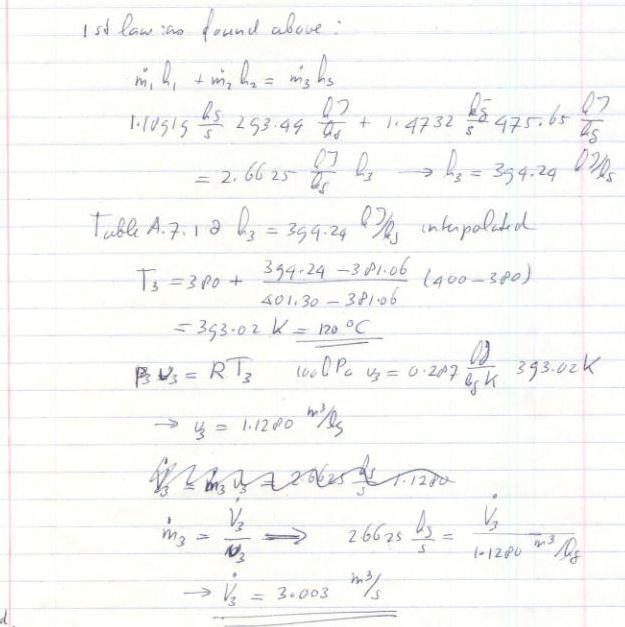 1st law as found above:
ṁ₁ h₁ + ṁ₂ h₂ = ṁ₃ h₃
1.18919 kg/s 293.49 kJ/kg + 1.4732 kg/s 475.65 kJ/kg
= 2.6625 kJ/kg h₃ → h₃ = 394.24 kJ/kg
Table A.7.1 @ h₃ = 394.24 kJ/kg interpolated
T₃ = 380 + (394.24 - 381.06)/(401.30 - 381.06) (400 - 380)
= 393.02 K = 120 °C
P₃ v₃ = R T₃ 100 kPa v₃ = 0.287 kJ/kg K 393.02 K
→ v₃ = 1.1280 m³/kg
V̇₃ = ṁ₃ v₃ = 2.6625 kg/s 1.1280
ṁ₃ = V̇₃/v₃ ⟹ 2.6625 kg/s = V̇₃/1.1280 m³/kg
→ V̇₃ = 3.003 m³/s